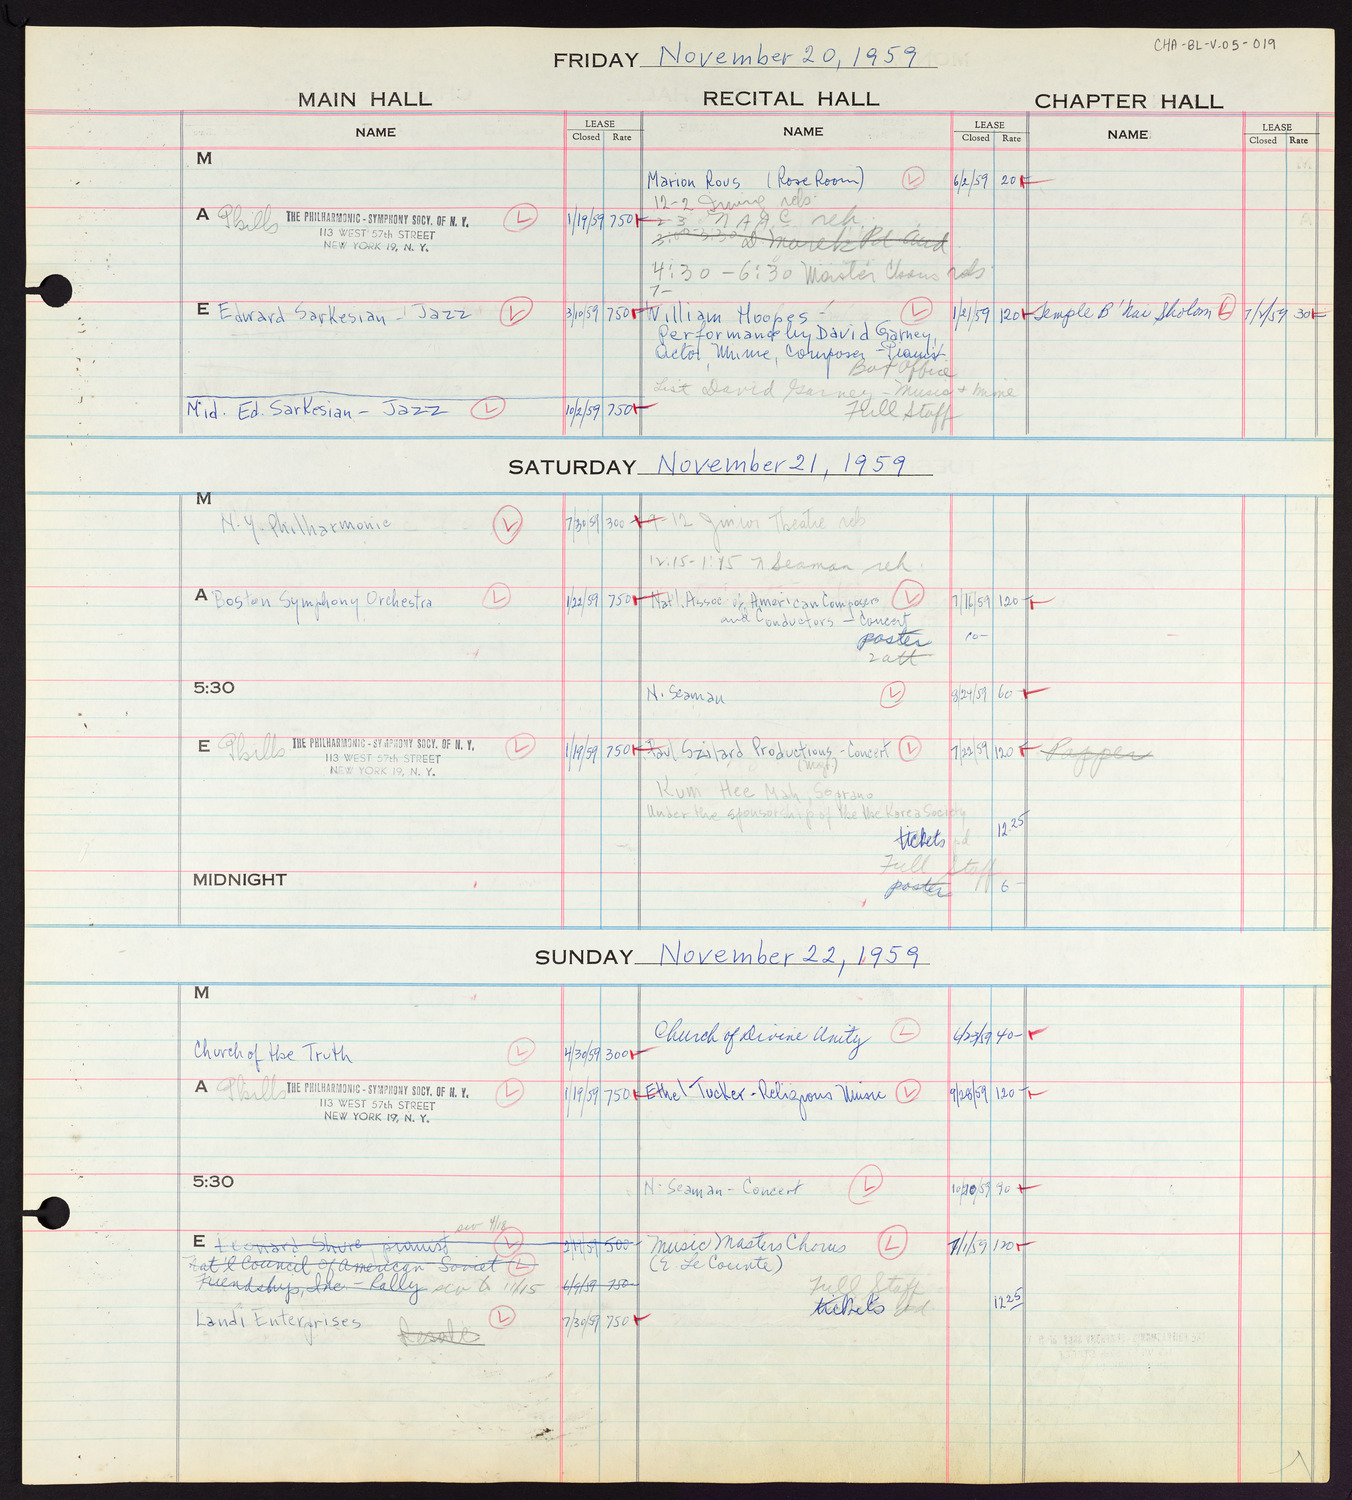 CHA-BL-V.05-019
FRIDAY November 20, 1959
MAIN HALL RECITAL HALL CHAPTER HALL
NAME LEASE Closed Rate NAME LEASE Closed Rate NAME LEASE Closed Rate
M
Marion Rous (Rose Room) L 6/2/59 20
12-2 Irving reh.
A Phills THE PHILHARMONIC-SYMPHONY SOCY. OF N. Y. L 1/19/59 750 2-3 NAACC reh.
113 WEST 57th STREET
NEW YORK 19, N. Y.
4:30-6:30 Master Chorus reh
7-
E Edward Sarkesian - Jazz L 3/10/59 750 William Hoopes - L 1/21/59 120 Temple B'nai Sholom L 30
Performance by David Garney,
Actor, Mime, Composer - Pianist
Box Office
List David Garney - Music + Mime
Mid. Ed. Sarkesian - Jazz L 10/2/59 750 Full Staff
SATURDAY November 21, 1959
M
N.Y. Philharmonic L 7/30/59 300 9-12 Junior Theatre reh
12.15-1:45 N Seaman reh.
A Boston Symphony Orchestra L 1/22/59 750 Nat'l. Assoc. of American Composers L 7/16/59 120
and Conductors - Concert
poster 10-
2 att
5:30 N. Seaman L 8/24/59 60
E Phills THE PHILHARMONIC-SYMPHONY SOCY. OF N. Y. L 1/19/59 750 Paul Szilard Productions - Concert L 7/22/59 120 Pepper
113 WEST 57th STREET
NEW YORK 19, N. Y.
Kum Hee Mah, Soprano
Under the sponsorship of the the Korea Society
tickets 12.25
Full Staff
MIDNIGHT poster 6-
SUNDAY November 22, 1959
M
Church of Divine Unity L 6/23/59 40-
Church of the Truth L 4/30/59 300
A Phills THE PHILHARMONIC-SYMPHONY SOCY. OF N. Y. L 1/19/59 750 Ethel Tucker - Religious Music L 9/28/59 120
113 WEST 57th STREET
NEW YORK 19, N. Y.
5:30 N. Seaman - Concert L 90
E Leonard Shure, pianist L 500 Music Masters Chorus L 7/1/59 120
Nat'l Council of American Soviet L (E Le Counte)
Friendship, Inc - Rally 11/15 6/9/59 750 Full Staff
tickets 12.25
Landi Enterprises L 7/30/59 750